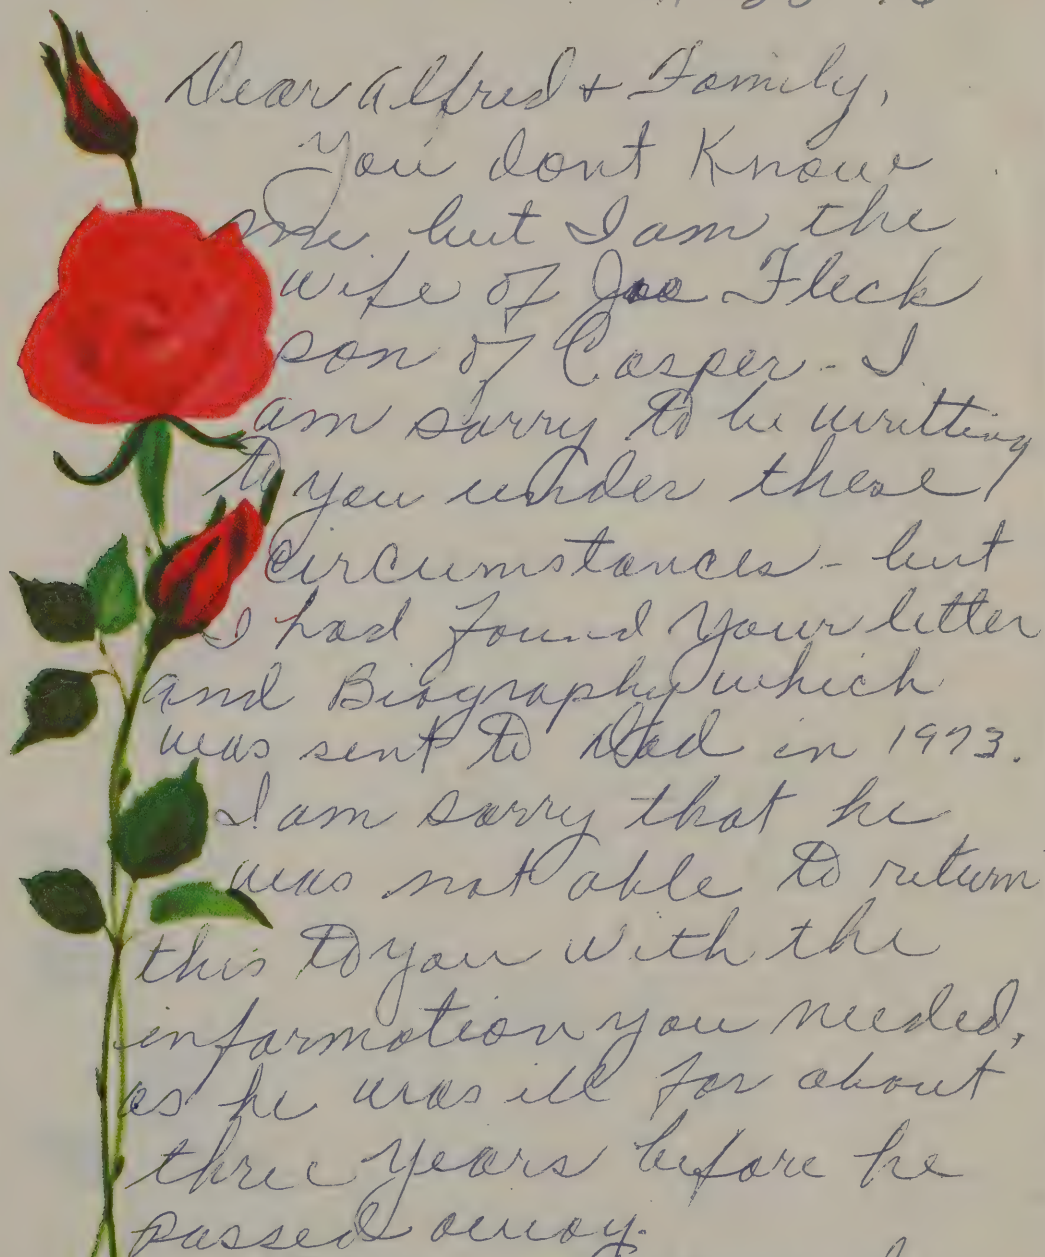 Dear Alfred + Family,
You dont Know
me but I am the
wife of Joe Fleck
son of Casper - I
am sorry to be writting
to you under these
circumstances - but
I had found your letter
and Biography which
was sent to Dad in 1973.
I am sorry that he
was not able to return
this to you with the
information you needed,
as he was ill for about
three years before he
passed away.